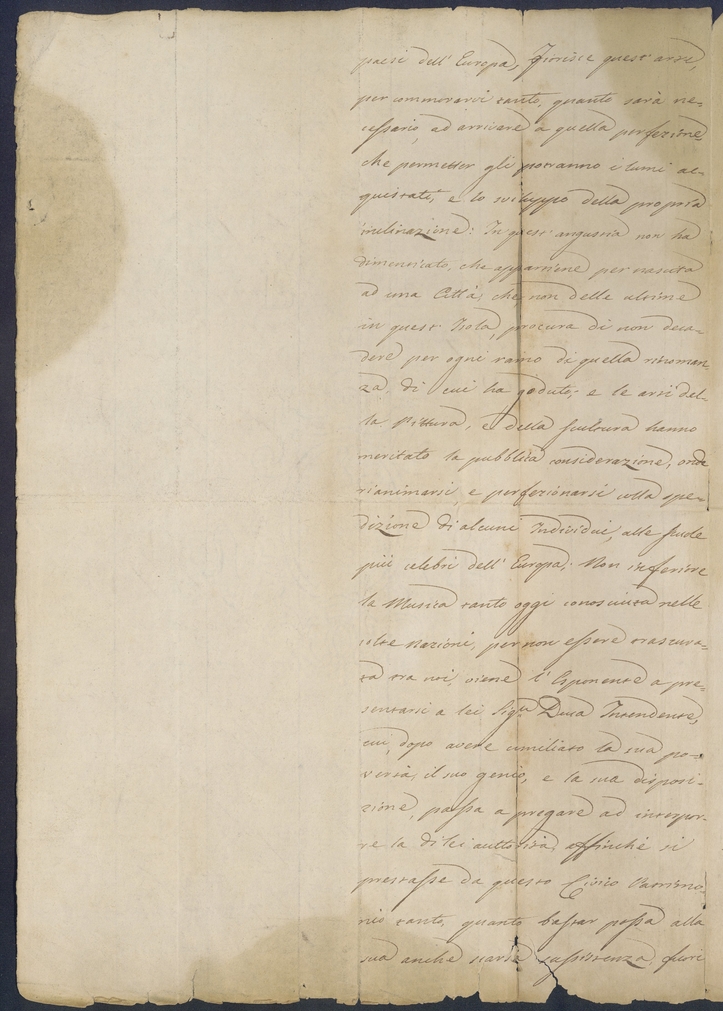 paesi dell' Europa, fiorisce quest' arte,
per commorarvi tanto, quanto sarà ne-
cessario, ad arrivare a quella perfezione
che permetter gli potranno i lumi ac-
quistati, e lo sviluppo della propria
inclinazione: In quest' angustia non ha
dimenticato, che appartiene per nascita
ad una Città, che non delle ultime
in quest' Isola, procura di non deca-
dere per ogni ramo di quella rinoman-
za, di cui ha goduto, e le arti del-
la Pittura, e della Scultura hanno
meritato la pubblica considerazione, onde
rianimarsi, e perfezionarsi colla spe-
dizione di alcuni Individui, alle scuole
più celebri dell' Europa; Non inferiore
la Musica tanto oggi conosciuta nelle
colte nazioni, per non essere trascura-
ta tra noi, viene l' Esponente a pre-
sentarsi a lei Sig.r Duca Intendente,
cui, dopo avere umiliato la sua po-
vertà, il suo genio, e la sua disposi-
zione, passa a pregare ad interpor-
re la di lei auttorità, affinché si
prestasse da questo Civico Patrimo-
nio tanto, quanto bastar possa alla
sua anche scarsa sussistenza, fuori